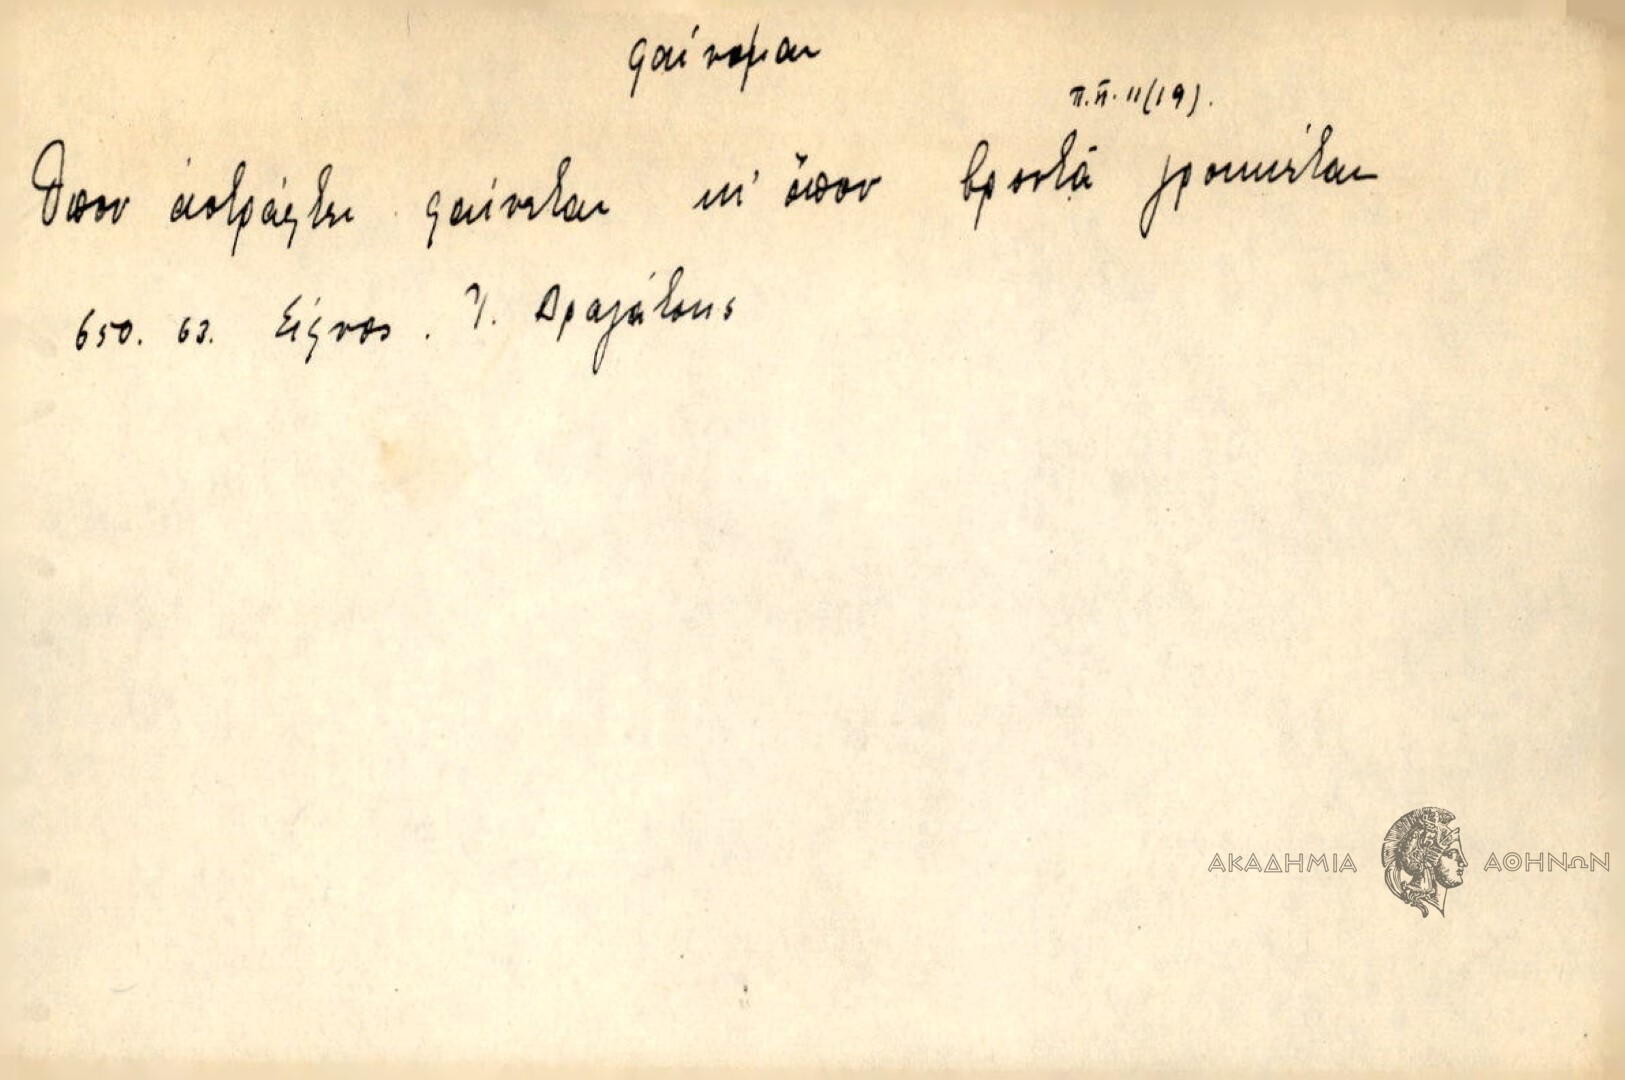 φαίνομαι
π.π. 11(19).
Ὅπου ἀστράφτει φαίνεται κι' ὅπου βροντᾷ γροικιέται
650. 63. Σίφνος. Ἰ. Δραγάτσης
ΑΚΑΔΗΜΙΑ ΑΘΗΝΩΝ